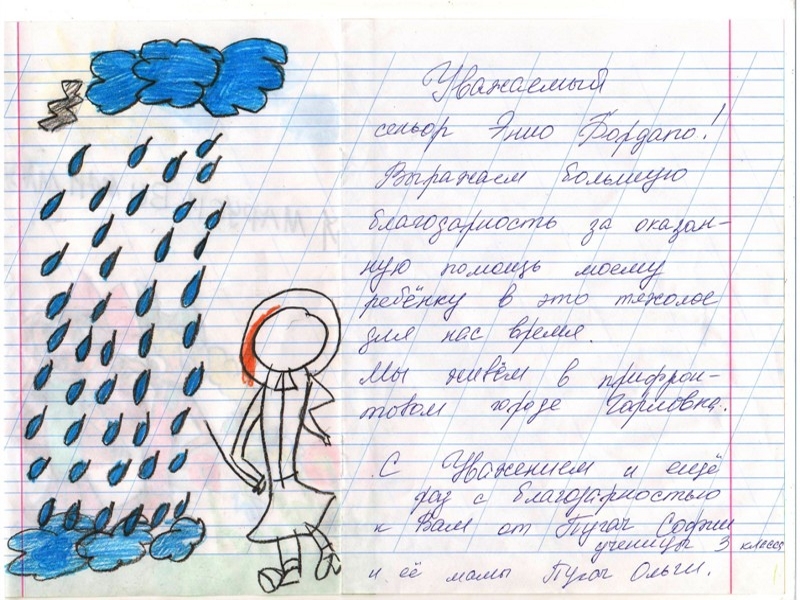 Уважаемый
сеньор Энио Бордапо!
Выражаем большую
благодарность за оказан-
ную помощь моему
ребёнку в это тяжолое
для нас время.
Мы живём в прифрон-
товом городе Горловка.
С Уважением и ещё
раз с благодарностью
к Вам от Пугач Софии
ученицы 3 класса
и её мамы Пугач Ольги.